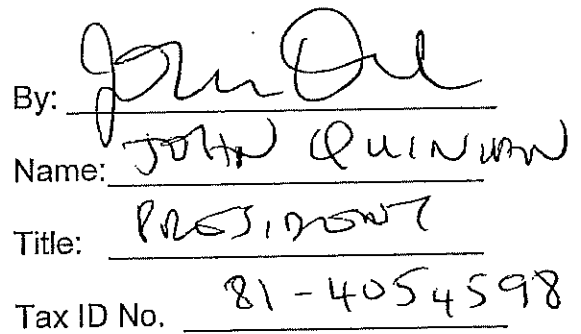 By:
Name: JOHN QUINLAN
Title: PRESIDENT
Tax ID No. 81-4054598